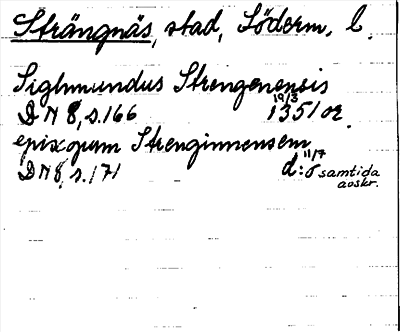 Strängnäs, stad, Söderm. l.
Sighmundus Strengenensis
DN 8, s. 166 19/3 1351 or.
episcopum Strenginensem
DN 8, s. 171 11/7 d:o samtida
avskr.